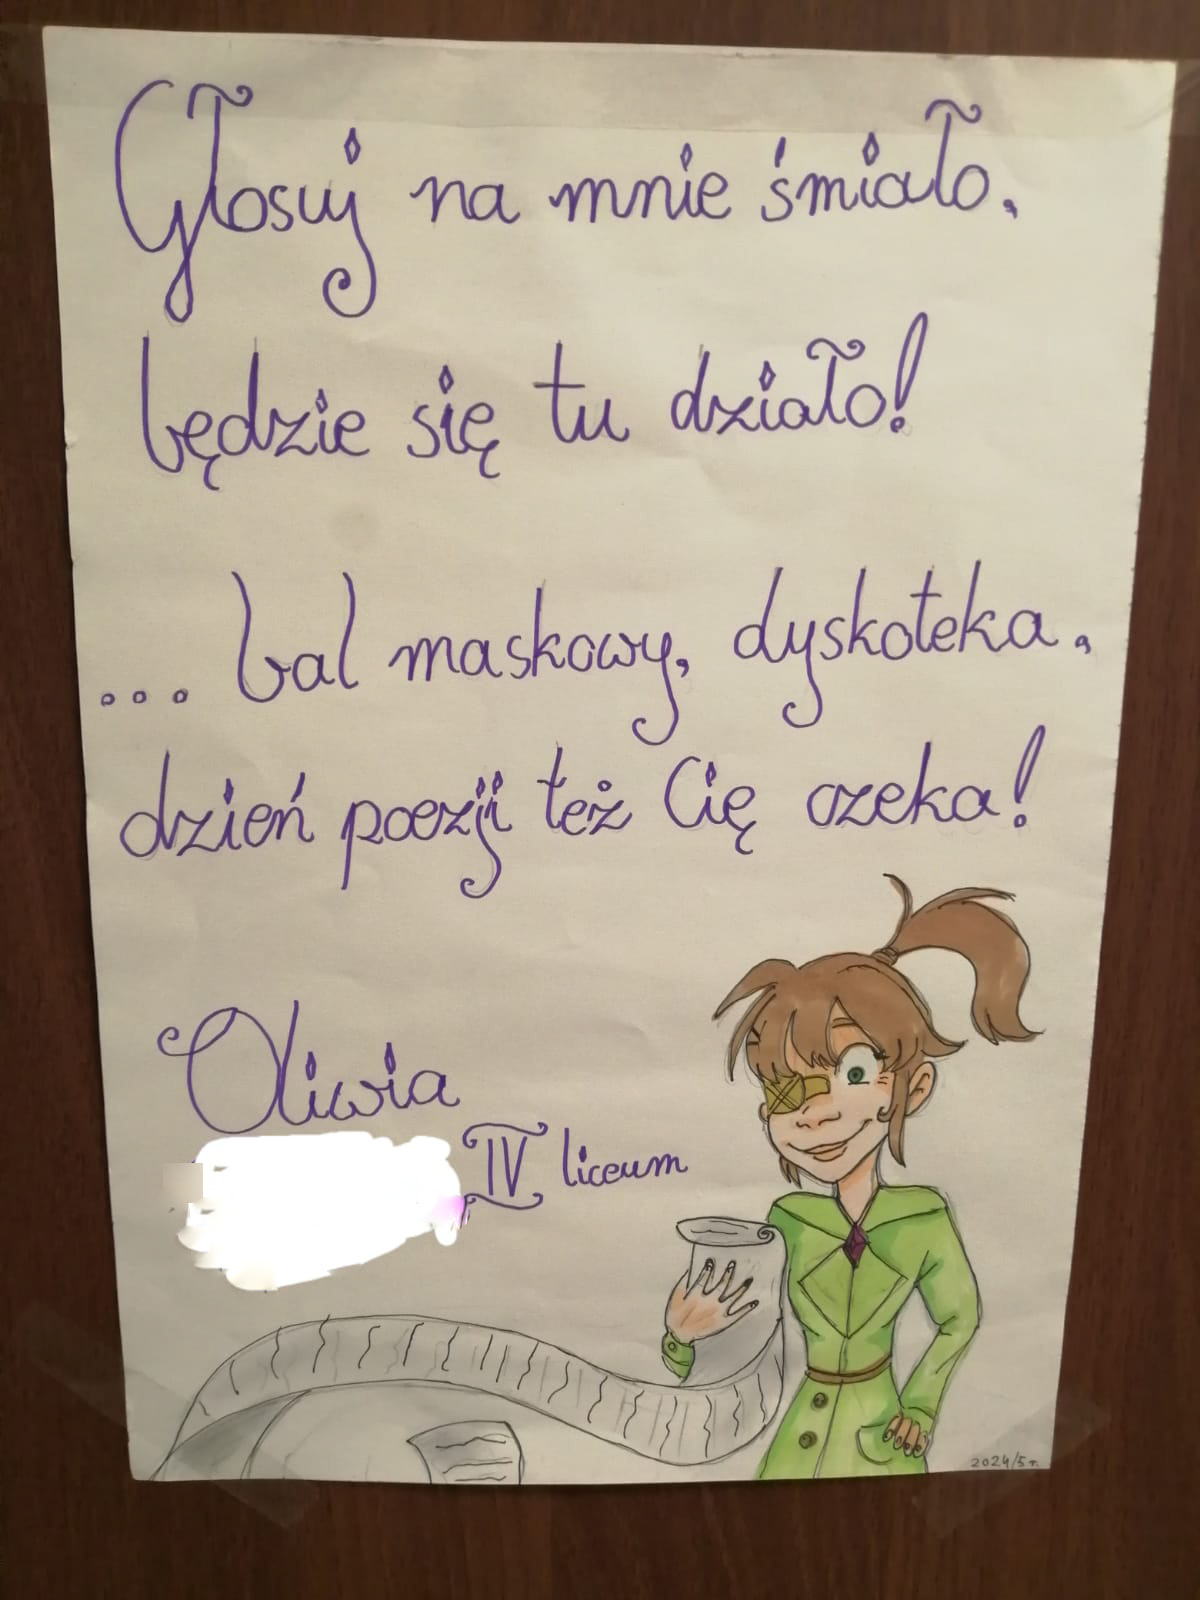 Głosuj na mnie śmiało,
będzie się tu działo!
... bal maskowy, dyskoteka,
dzień poezji też Cię czeka!
Oliwia
IV liceum
2024/5 r.